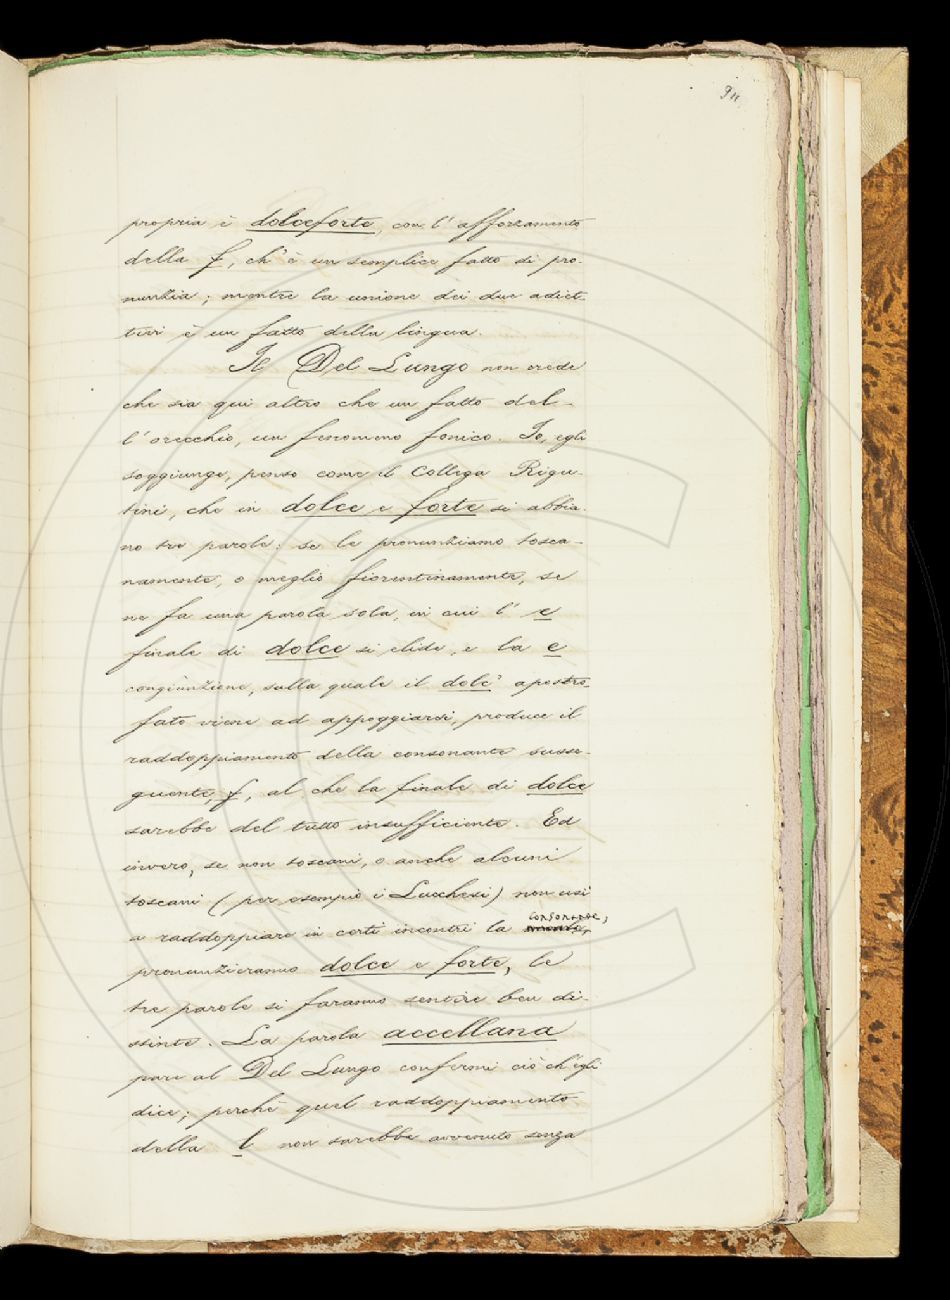 911
propria è dolceforte, con l' afforzamento
della f, ch' è un semplice fatto di pro-
nunzia; mentre la unione dei due adiet-
tivi è un fatto della lingua.
Il Del Lungo non crede
che sia qui altro che un fatto del-
l' orecchio, un fenomeno fonico. Io, egli
soggiunge, penso come il Collega Rigu-
tini, che in dolce e forte si abbia-
no tre parole: se le pronunziamo tosca-
namente, o meglio fiorentinamente, se
ne fa una parola sola, in cui l' e
finale di dolce si elide, e la e
congiunzione, sulla quale il dolc' apostro-
fato viene ad appoggiarsi, produce il
raddoppiamento della consonante susse-
guente, f, al che la finale di dolce
sarebbe del tutto insufficiente. Ed
invero, se non toscani, o anche alcuni
toscani (per esempio i Lucchesi) non usi
consonante,
a raddoppiare in certi incontri la
pronunzieranno dolce e forte, le
tre parole si faranno sentire ben di-
stinte. La parola accellana
pare al Del Lungo confermi ciò ch' egli
dice; perchè quel raddoppiamento
della l non sarebbe avvenuto senza